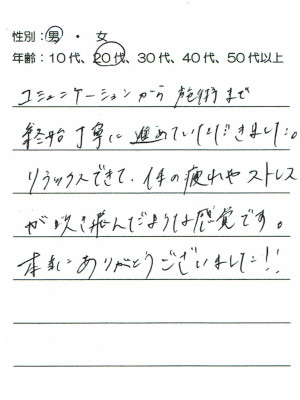 性別：男・女
年齢：10代、20代、30代、40代、50代以上
コミュニケーションから施術まで
終始丁寧に進めていただきました。
リラックスできて、体の疲れやストレス
が吹き飛んだような感覚です。
本当にありがとうございました!!